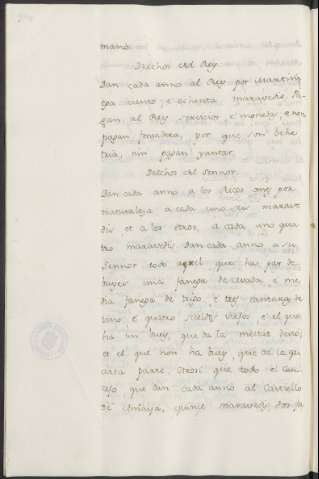 mano.
Drechos del Rey
Dan cada anno al Rey por Martini
ega ciento, e ochenta maravedis. Pa-
gan al Rey servicios, e moneda, e non
pagan fonsadera, por que son behe-
tria, nin pagan yantar.
Drechos del Sennor.
Dan cada anno a los Ricos omes por
naturaleza a cada uno seis marave-
dis, et a los otros, a cada uno qua-
tro maravedis. Dan cada anno a su
Sennor todo aquel que ha par de
bueyes una fanega de cevada, e me-
dia fanega de trigo, e tres cantaras de
vino, e quatro sueldos viejos: e el que
ha un buey, que da la mectat desto;
et el que non ha buey, que da la qu
arta parte. Otrosi que todo el Con-
cejo que dan cada anno al Castiello
de Amaya, quince maravedis. Por fa